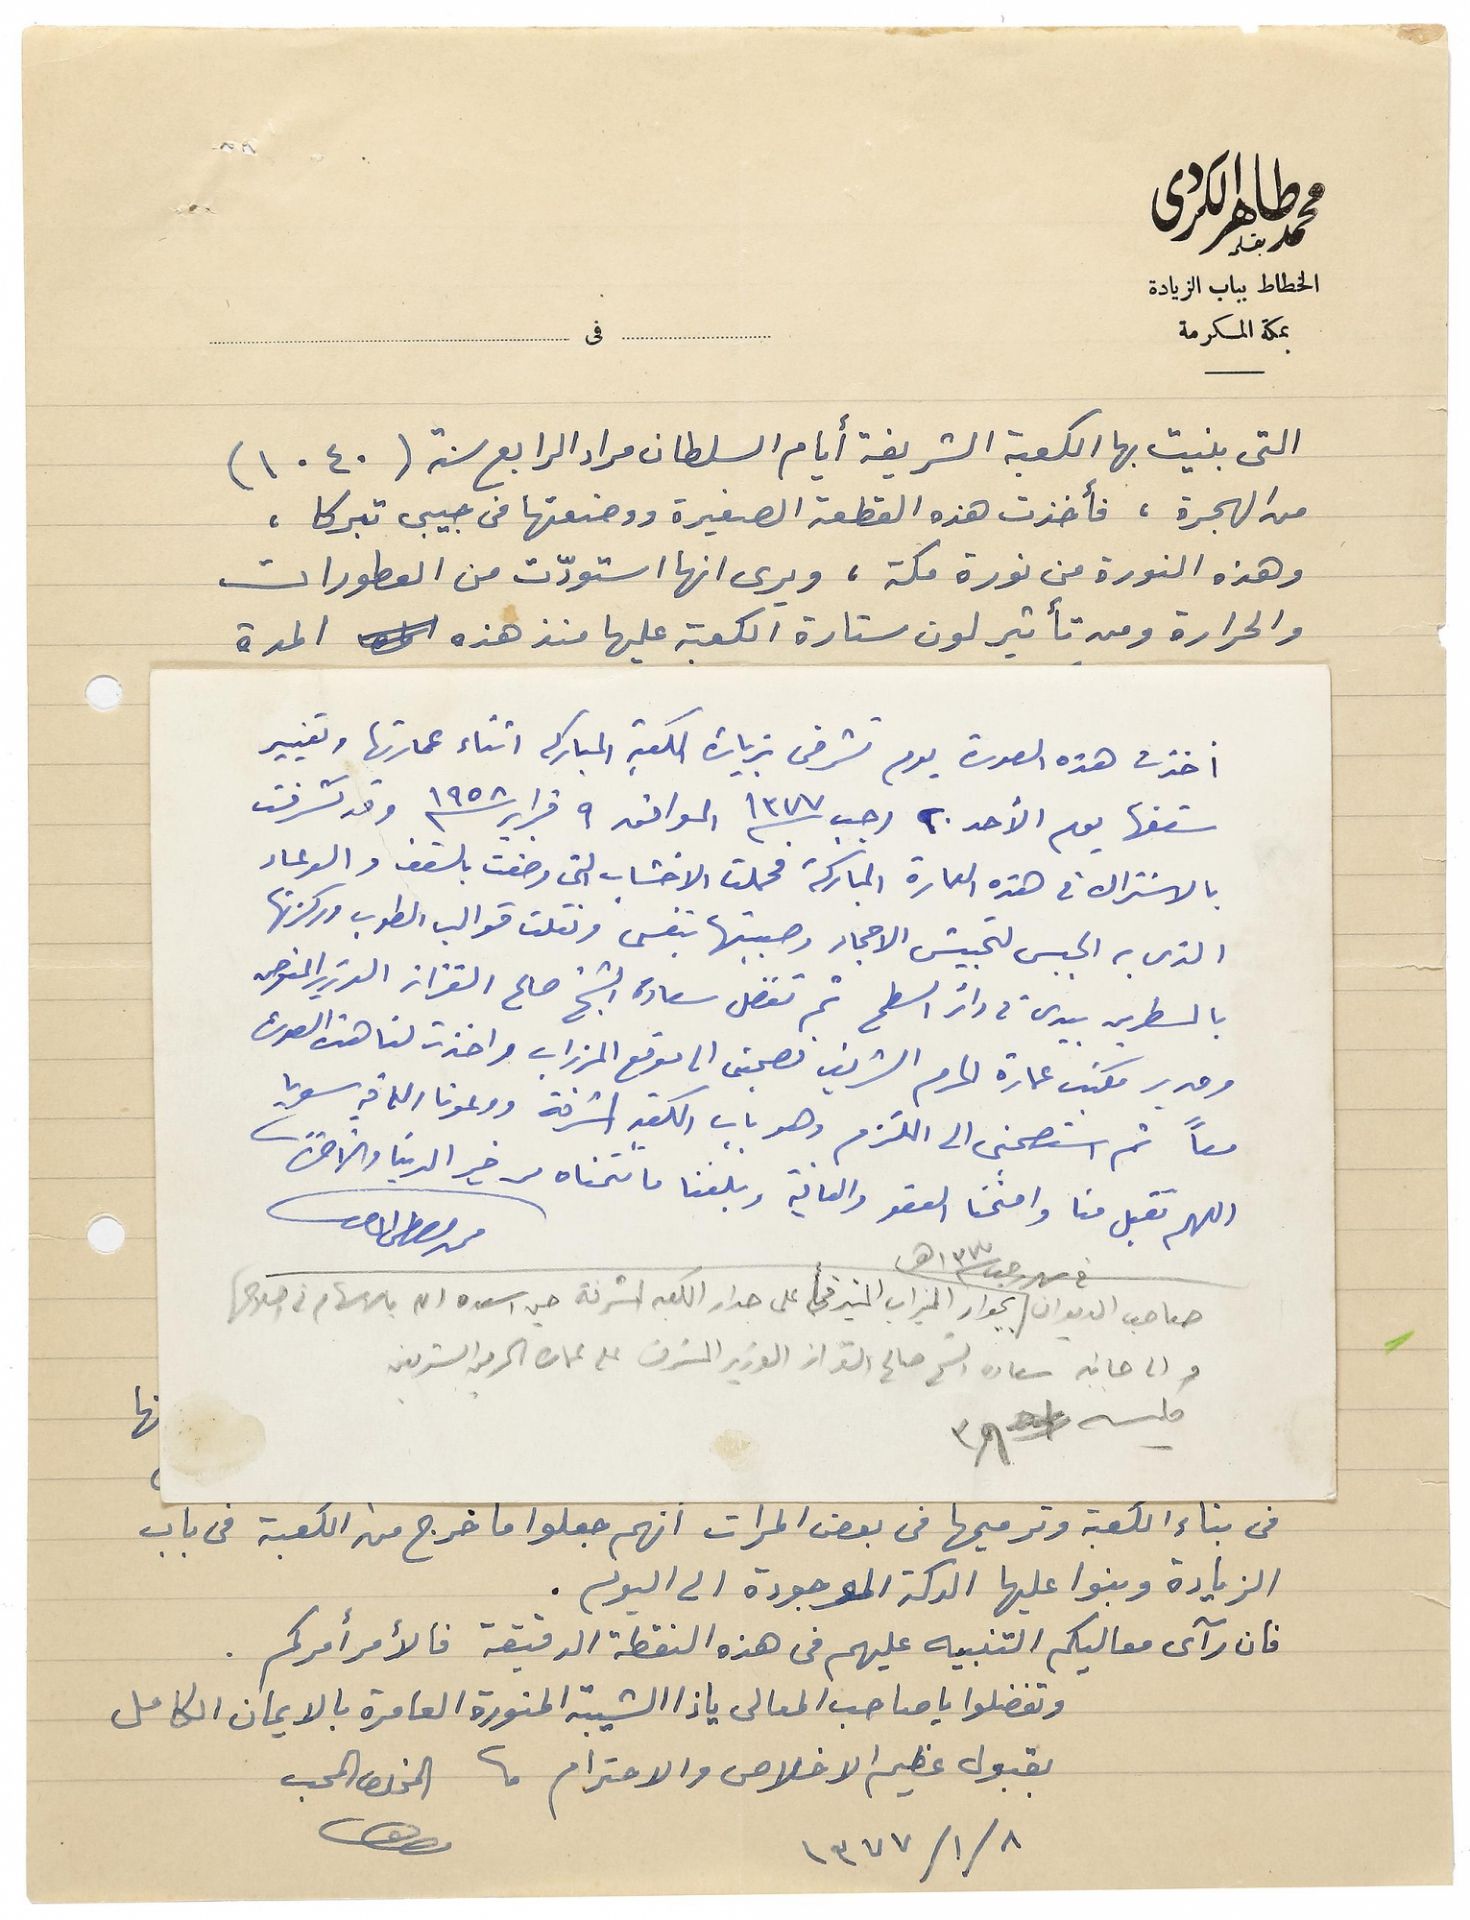 محمد طاهر الكردى
بقلم
الخطاط بباب الزيادة
بمكة المكرمة
فى
التى بنيت بها الكعبة الشريفة أيام السلطان مراد الرابع سنة (١٠٤٠)
من الهجرة ، فأخذت هذه القطعة الصغيرة ووضعتها فى جيبى تبركا ،
وهذه النورة من نورة مكة ، ويرى انها استودّت من العطورات
والحرارة ومن تأثير لون ستارة الكعبة عليها منذ هذه المدة
أخذت هذه الصورة يوم تشرفى بزيارة الكعبة المباركه اثناء عمارتها وتغيير
سقفها يوم الأحد ٢٠ رجب ١٣٧٧ الموافق ٩ فبراير ١٩٥٨ وقد تشرفت
بالاشتراك فى هذه العمارة المباركة فحملت الاخشاب التى وضعت بالسقف و
الذى به الجبس لتجبيش الاحجار وصببتها بنفسى ونقلت قوالب الطوب وركزتها
بالمسطرين بيدى فى دائر السطح ثم تفضل سعادة الشيخ صالح القزاز الوزير المفوض
ومدير مكتب عمارة الحرم الشريف فصحبنى الى موقع المزراب واخذت لنا هذه الصورة
معاً ثم استصحبنى الى الملتزم وهو باب الكعبة المشرفة ودعونا الله فيه سويا
اللهم تقبل منا وامنحنا العفو والعافية وبلغنا ما نتمناه من خير الدنيا والآخرة
فى شهر رجب ١٣٧٧هـ
صاحب الديوان بجوار الميزاب المنيف على جدار الكعبه المشرفة حين اسعده الله بالاسهام فى اصلاحها
والى جانبه سعاده الشيخ صالح القزاز الوزير المشرف على عمارة الحرمين الشريفين
نها
فى بناء الكعبة وترميمها فى بعض المرات أنهم جعلوا ما خرج من الكعبة فى باب
الزيادة وبنوا عليها الدكة الموجودة الى اليوم .
فان رآى معاليكم التنبيه عليهم فى هذه النقطة الدقيقة فالأمر أمركم .
وتفضلوا يا صاحب المعالى ياذا الشيبة المنورة العامرة بالايمان الكامل
بقبول عظيم الاخلاص والاحترام المخلص المحب
١٣٧٧/١/٨